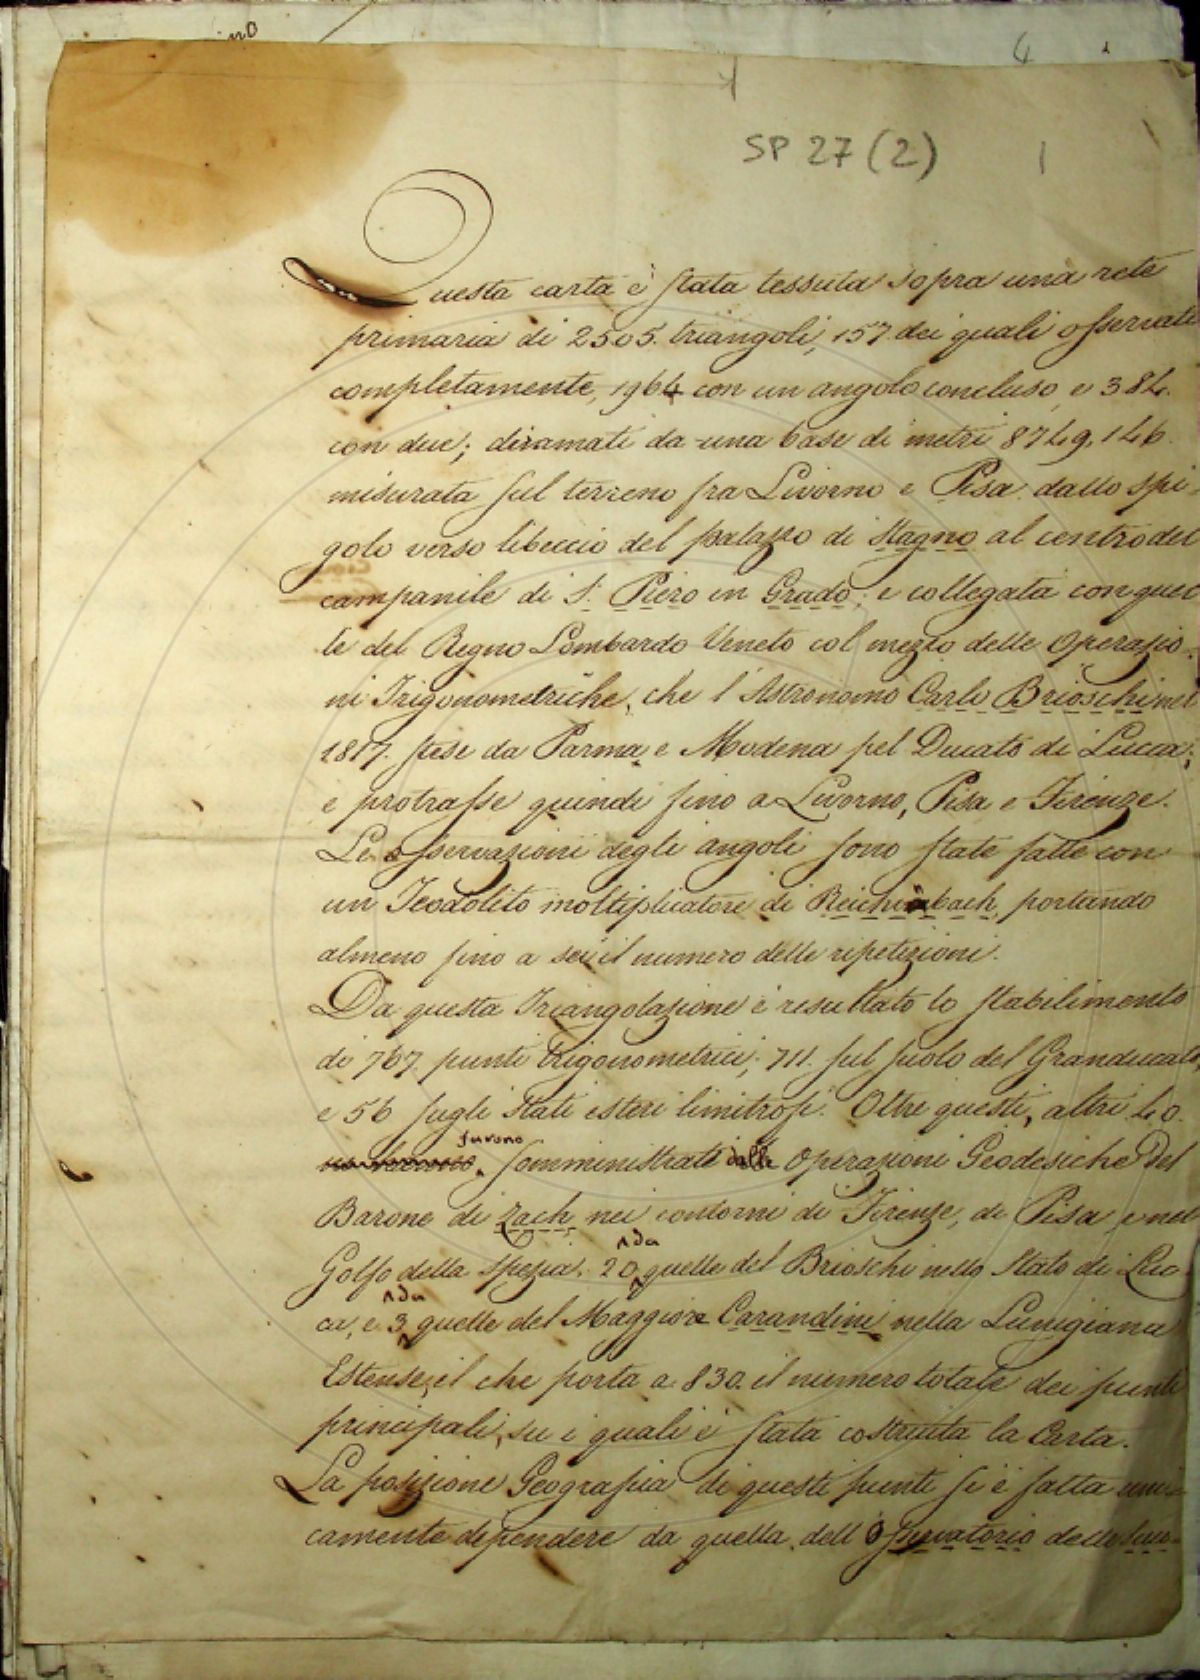 4
SP 27 (2) 1
Questa carta è stata tessuta sopra una rete
primaria di 2505. triangoli, 157. dei quali osservati
completamente, 1964 con un angolo concluso, e 384.
con due; diramati da una base di metri 8749,146
misurata sul terreno fra Livorno e Pisa dallo spi
golo verso libeccio del palazzo di Stagno al centro del
campanile di S. Piero in Grado; e collegata con quel
le del Regno Lombardo Veneto col mezzo delle operazio
ni Trigonometriche, che l'Astronomo Carlo Brioschi nel
1817. stese da Parma e Modena pel Ducato di Lucca;
e protrasse quindi fino a Livorno, Pisa e Firenze.
Le osservazioni degli angoli sono state fatte con
un Teodolito moltiplicatore di Reichenbach, portando
almeno fino a sei il numero delle ripetizioni.
Da questa Triangolazione è resultato lo stabilimento
di 767. punti trigonometrici; 711. sul suolo del Granducato,
e 56 sugli Stati esteri limitrofi. Oltre questi, altri 40.
furono
somministrati dalle operazioni Geodesiche del
Barone di Zach nei contorni di Firenze, di Pisa, e nel
Golfo della Spezia; 20 da quelle del Brioschi nello Stato di Luc
ca, e 3 da quelle del Maggiore Carandini nella Lunigiana
Estense; il che porta a 830. il numero totale dei punti
principali, su i quali è stata costruita la Carta.
La posizione Geografia di questi punti si è fatta uni
camente dipendere da quella dell'Osservatorio delle Scuo